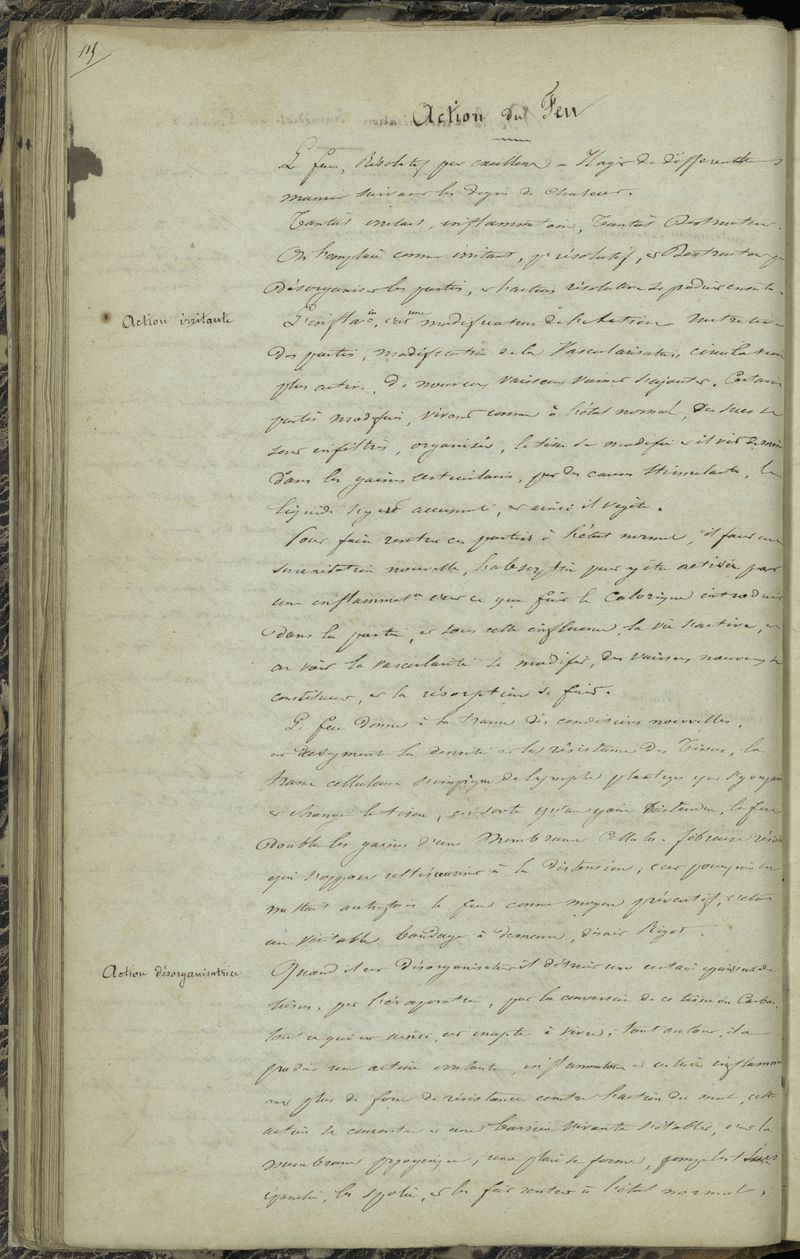 115
Action du Feu
Le feu, Résolutif par excellence - Il agit de differentes
manières suivant les degrés de chaleur.
Tantôt irritant, inflammatoire, Tantôt Destructeur.
On l'emploie comme irritant, résolutif, et Destructeur p
Désorganiser les parties, et l'action résolutive se produit ensuite.
Action irritante
L'inflaon, c'est une modification de l'
des parties, modification de la Vascularisation, circulation
plus active, de nouveaux vaisseaux viennent s'ajouter. Certaines
parties modifiées, vivent comme à l'état normal, Des sucs se
sont infiltrés, organisés, le tissu se modifie et il vit de même
Dans les gaines, par des causes stimulantes, le
liquide s'y est accumulé, et ainsi il végète.
Pour faire rentrer ces parties à l'état normal, il faut une
surexcitation nouvelle, l'absorption peut y être activée par
une inflammaton c'est ce que fait le Calorique introduit
dans la partie, et sous cette influence, la vie s'active, et
on voit la vascularité se modifier, Des vaisseaux nouveaux se
constituent, et la résorption se fait.
Le feu donne à la trame des conditions nouvelles,
et augmente la densité et la résistance des Tissus, la
trame cellulaire s'imprègne de lymphe plastique qui s'y organise
et change le tissu, en sorte qu'une gaine Distendue, le feu
double les gaines d'une Membrane Cellulo-fibreuse
qui s'oppose ultérieurement à la Distension, c'est pourquoi on
mettait autrefois le feu comme moyen préventif, c'était
un véritable bandage à demeure, disait Rigot.
Action désorganisatrice
Quand il est Désorganisateur il détruit une certaine épaisseur de
tissus, par l'évaporation, par la conversion de ce tissu en Carbon.
tout ce qui est ainsi, est inapte à vivre; tout autour, il a
produit une action irritante, inflammatoire et
plus de force de résistance contre l'action du mal, cette
action se concentre et une barrière vivante s'établit, c'est la
membrane pyogénique, une plaie se forme,
les, et les fait rentrer à l'état normal.